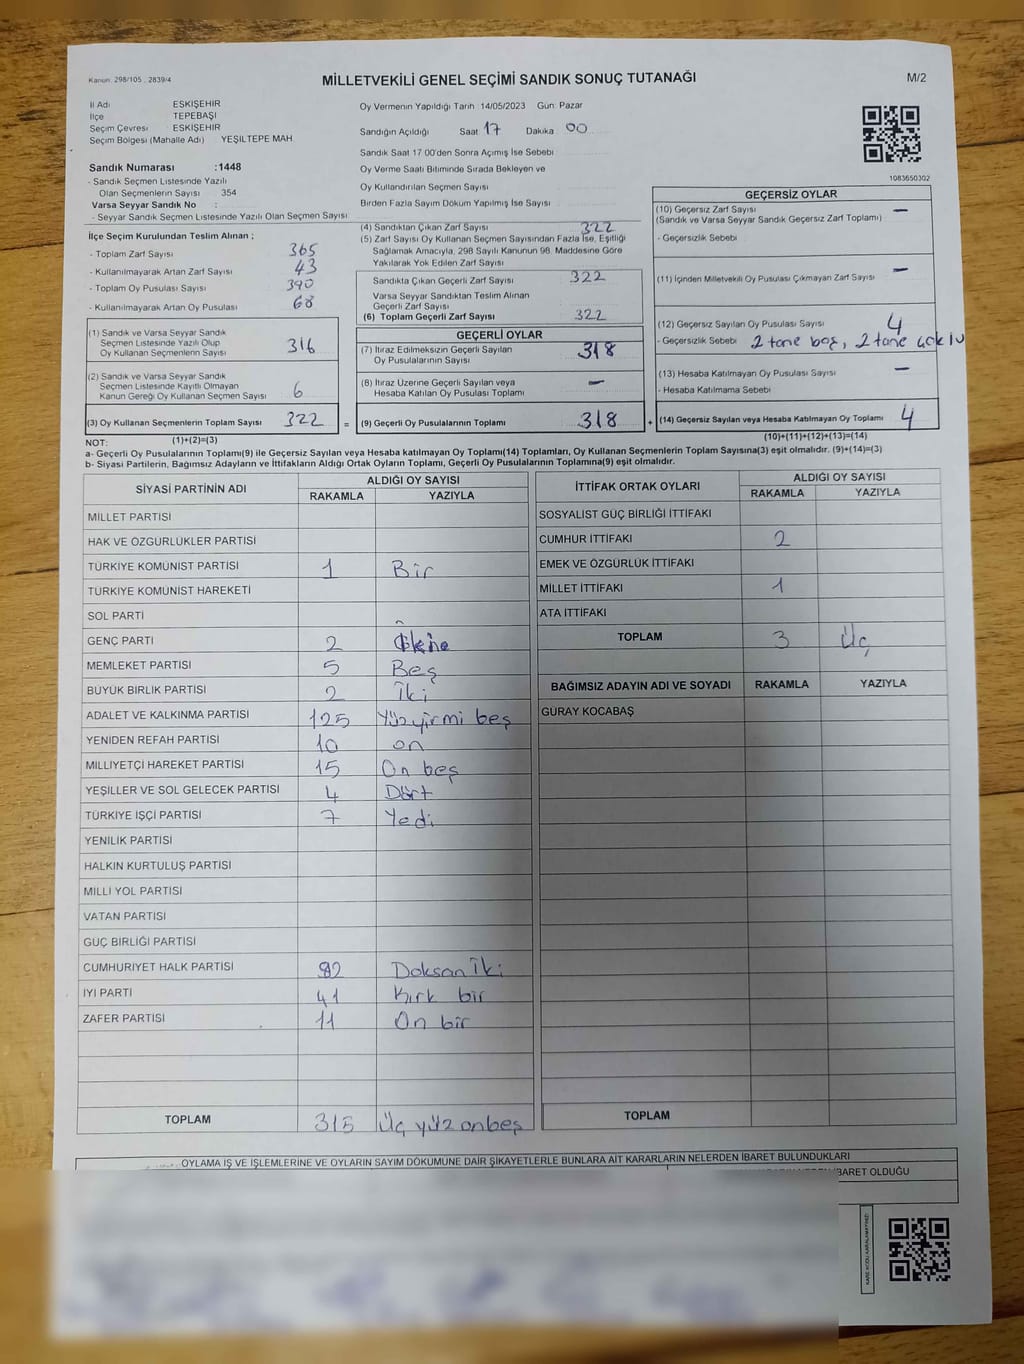 Kanun: 298/105 , 2839/4
MİLLETVEKİLİ GENEL SEÇİMİ SANDIK SONUÇ TUTANAĞI
M/2
İl Adı ESKİŞEHİR
İlçe TEPEBAŞI
Seçim Çevresi ESKİŞEHİR
Seçim Bölgesi (Mahalle Adı) YEŞİLTEPE MAH.
Oy Vermenin Yapıldığı Tarih :14/05/2023 Gün: Pazar
Sandığın Açıldığı Saat 17 Dakika 00
Sandık Saat 17 00'den Sonra Açılmış İse Sebebi
Oy Verme Saati Bitiminde Sırada Bekleyen ve
Oy Kullandırılan Seçmen Sayısı
Birden Fazla Sayım Döküm Yapılmış İse Sayısı
1083650302
Sandık Numarası :1448
- Sandık Seçmen Listesinde Yazılı
Olan Seçmenlerin Sayısı 354
Varsa Seyyar Sandık No :
- Seyyar Sandık Seçmen Listesinde Yazılı Olan Seçmen Sayısı
İlçe Seçim Kurulundan Teslim Alınan ;
- Toplam Zarf Sayısı 365
- Kullanılmayarak Artan Zarf Sayısı 43
- Toplam Oy Pusulası Sayısı 390
- Kullanılmayarak Artan Oy Pusulası 68
(1) Sandık ve Varsa Seyyar Sandık
Seçmen Listesinde Yazılı Olup
Oy Kullanan Seçmenlerin Sayısı 316
(2) Sandık ve Varsa Seyyar Sandık
Seçmen Listesinde Kayıtlı Olmayan
Kanun Gereği Oy Kullanan Seçmen Sayısı 6
(3) Oy Kullanan Seçmenlerin Toplam Sayısı 322 =
(1)+(2)=(3)
(4) Sandıktan Çıkan Zarf Sayısı 322
(5) Zarf Sayısı Oy Kullanan Seçmen Sayısından Fazla İse, Eşitliği
Sağlamak Amacıyla, 298 Sayılı Kanunun 98. Maddesine Göre
Yakılarak Yok Edilen Zarf Sayısı
Sandıkta Çıkan Geçerli Zarf Sayısı 322
Varsa Seyyar Sandıktan Teslim Alınan
Geçerli Zarf Sayısı
(6) Toplam Geçerli Zarf Sayısı 322
GEÇERLİ OYLAR
(7) İtiraz Edilmeksizin Geçerli Sayılan
Oy Pusulalarının Sayısı 318
(8) İtiraz Üzerine Geçerli Sayılan veya
Hesaba Katılan Oy Pusulası Toplamı —
(9) Geçerli Oy Pusulalarının Toplamı 318 +
GEÇERSİZ OYLAR
(10) Geçersiz Zarf Sayısı —
(Sandık ve Varsa Seyyar Sandık Geçersiz Zarf Toplamı)
- Geçersizlik Sebebi
(11) İçinden Milletvekili Oy Pusulası Çıkmayan Zarf Sayısı —
(12) Geçersiz Sayılan Oy Pusulası Sayısı 4
- Geçersizlik Sebebi 2 tane boş, 2 tane
(13) Hesaba Katılmayan Oy Pusulası Sayısı —
- Hesaba Katılmama Sebebi
(14) Geçersiz Sayılan veya Hesaba Katılmayan Oy Toplamı 4
(10)+(11)+(12)+(13)=(14)
NOT:
a- Geçerli Oy Pusulalarının Toplamı(9) ile Geçersiz Sayılan veya Hesaba katılmayan Oy Toplamı(14) Toplamları, Oy Kullanan Seçmenlerin Toplam Sayısına(3) eşit olmalıdır. (9)+(14)=(3)
b- Siyasi Partilerin, Bağımsız Adayların ve İttifakların Aldığı Ortak Oyların Toplamı, Geçerli Oy Pusulalarının Toplamına(9) eşit olmalıdır.
SİYASİ PARTİNİN ADI ALDIĞI OY SAYISI
RAKAMLA YAZIYLA
MİLLET PARTİSİ
HAK VE ÖZGÜRLÜKLER PARTİSİ
TÜRKİYE KOMÜNİST PARTİSİ 1 Bir
TÜRKİYE KOMÜNİST HAREKETİ
SOL PARTİ
GENÇ PARTİ 2
MEMLEKET PARTİSİ 5 Beş
BÜYÜK BİRLİK PARTİSİ 2 İki
ADALET VE KALKINMA PARTİSİ 125 Yüzyirmi beş
YENİDEN REFAH PARTİSİ 10 on
MİLLİYETÇİ HAREKET PARTİSİ 15 On beş
YEŞİLLER VE SOL GELECEK PARTİSİ 4 Dört
TÜRKİYE İŞÇİ PARTİSİ 7 Yedi
YENİLİK PARTİSİ
HALKIN KURTULUŞ PARTİSİ
MİLLİ YOL PARTİSİ
VATAN PARTİSİ
GÜÇ BİRLİĞİ PARTİSİ
CUMHURİYET HALK PARTİSİ 92 Doksan İki
İYİ PARTİ 41 Kırk bir
ZAFER PARTİSİ 11 On bir
TOPLAM 315 Üç yüz onbeş
İTTİFAK ORTAK OYLARI ALDIĞI OY SAYISI
RAKAMLA YAZIYLA
SOSYALİST GÜÇ BİRLİĞİ İTTİFAKI
CUMHUR İTTİFAKI 2
EMEK VE ÖZGÜRLÜK İTTİFAKI
MİLLET İTTİFAKI 1
ATA İTTİFAKI
TOPLAM 3 Üç
BAĞIMSIZ ADAYIN ADI VE SOYADI RAKAMLA YAZIYLA
GÜRAY KOCABAŞ
TOPLAM
OYLAMA İŞ VE İŞLEMLERİNE VE OYLARIN SAYIM DÖKÜMÜNE DAİR ŞİKAYETLERLE BUNLARA AİT KARARLARIN NELERDEN İBARET BULUNDUKLARI
İBARET OLDUĞU